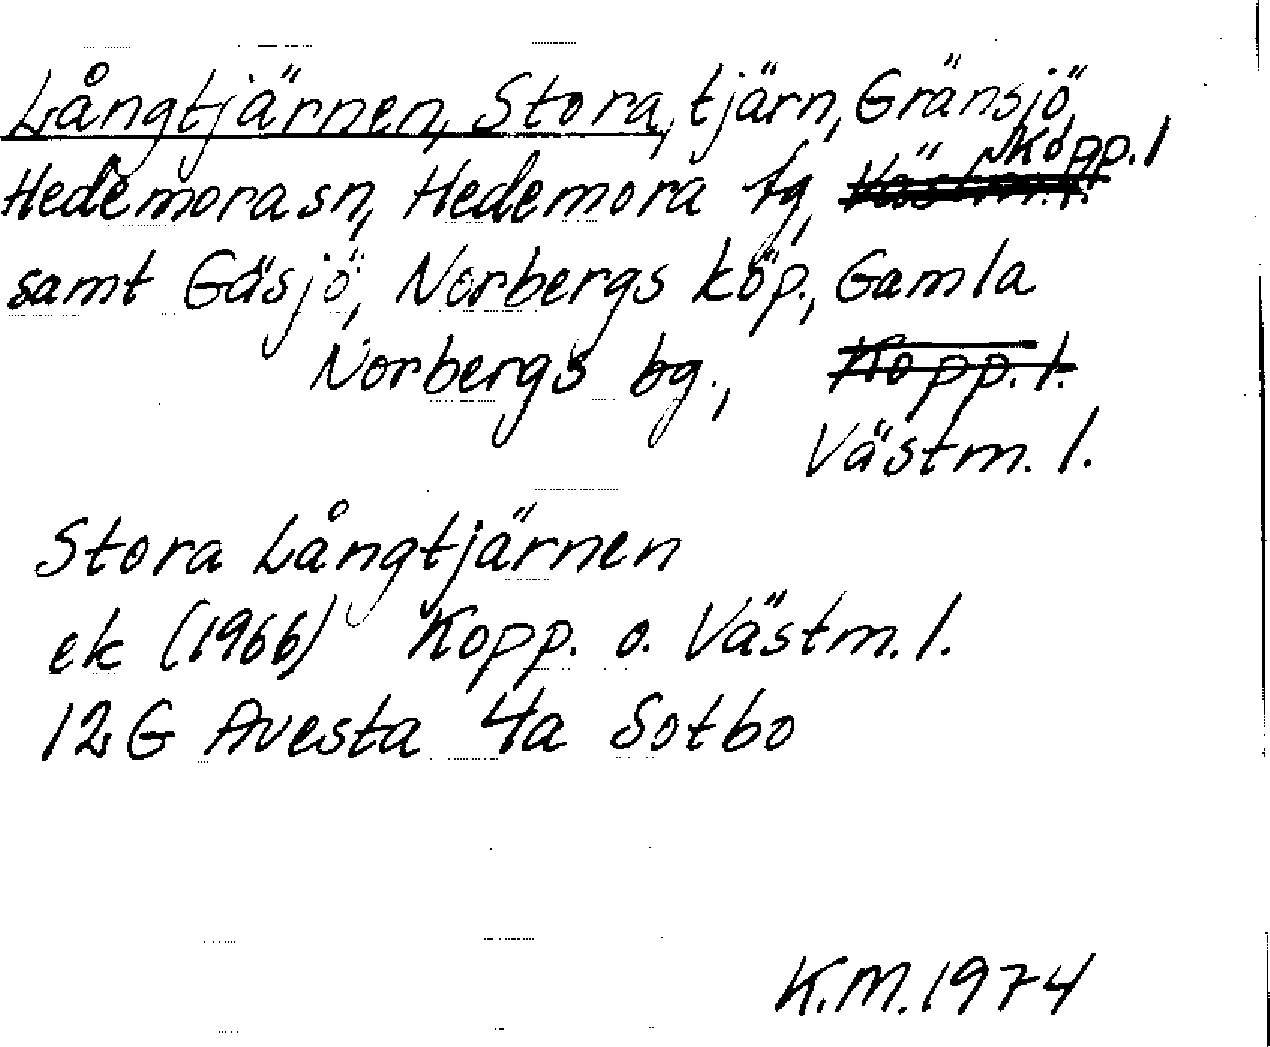 Långtjärnen, Stora, tjärn, Gränsjö,
Hedemora sn, Hedemora tg, Västm.l. Kopp.l
samt Gäsjö, Norbergs köp., Gamla
Norbergs bg., Kopp. l.
Västm. l.
Stora Långtjärnen
ek (1966) Kopp. o. Västm. l.
12G Avesta 4a Sotbo
K.M. 1974